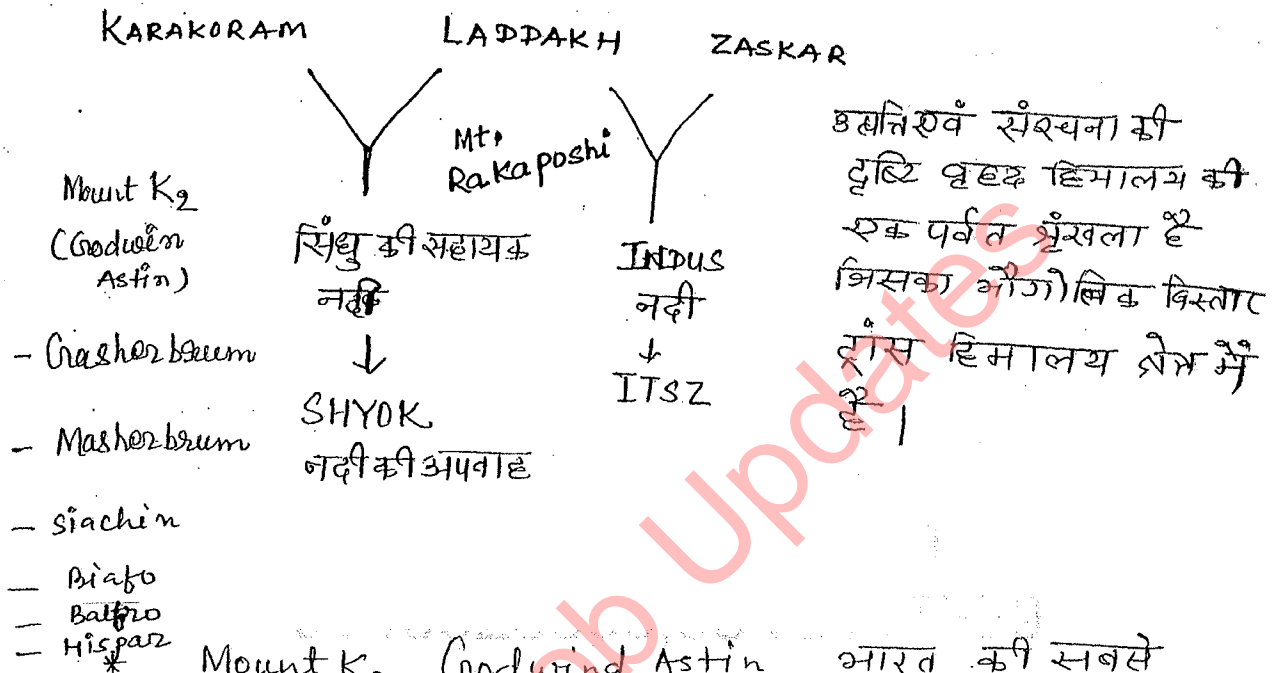 KARAKORAM
LADDAKH
ZASKAR
Mount K2
(Godwin
Astin)
- Gasherbrum
- Masherbrum
- siachin
- Biafo
- Baltro
- Hispar
सिंधु की सहायक
नदी
↓
SHYOK
नदी की अपवाह
Mt.
Rakaposhi
INDUS
नदी
↓
ITSZ
उत्पत्ति एवं संरचना की
दृष्टि वृहद हिमालय की
एक पर्वत श्रृंखला है
जिसका भौगोलिक विस्तार
ट्रांस हिमालय क्षेत्र में
है।
* Mount K2 Godwind Astin भारत की सबसे
Updates